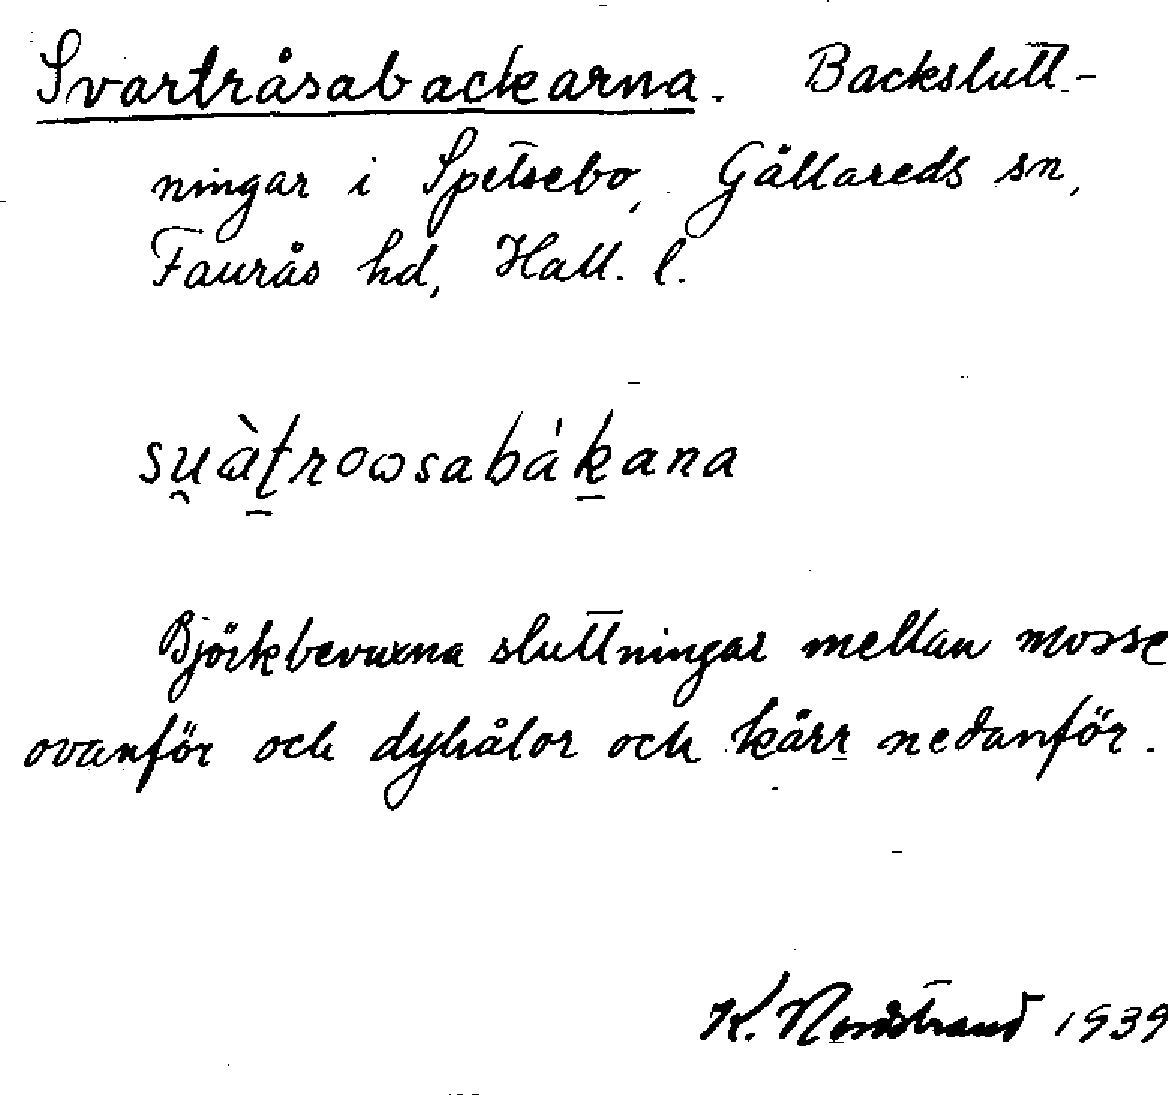 Svartråsabackarna. Backslutt-
ningar i Spetsebo, Gällareds sn,
Faurås hd, Hall. l.
su̯àt̠roωsabák̠ana
Björkbevuxna sluttningar mellan mosse
ovanför och dyhålor och kärr nedanför.
K. Nordstrand 1939